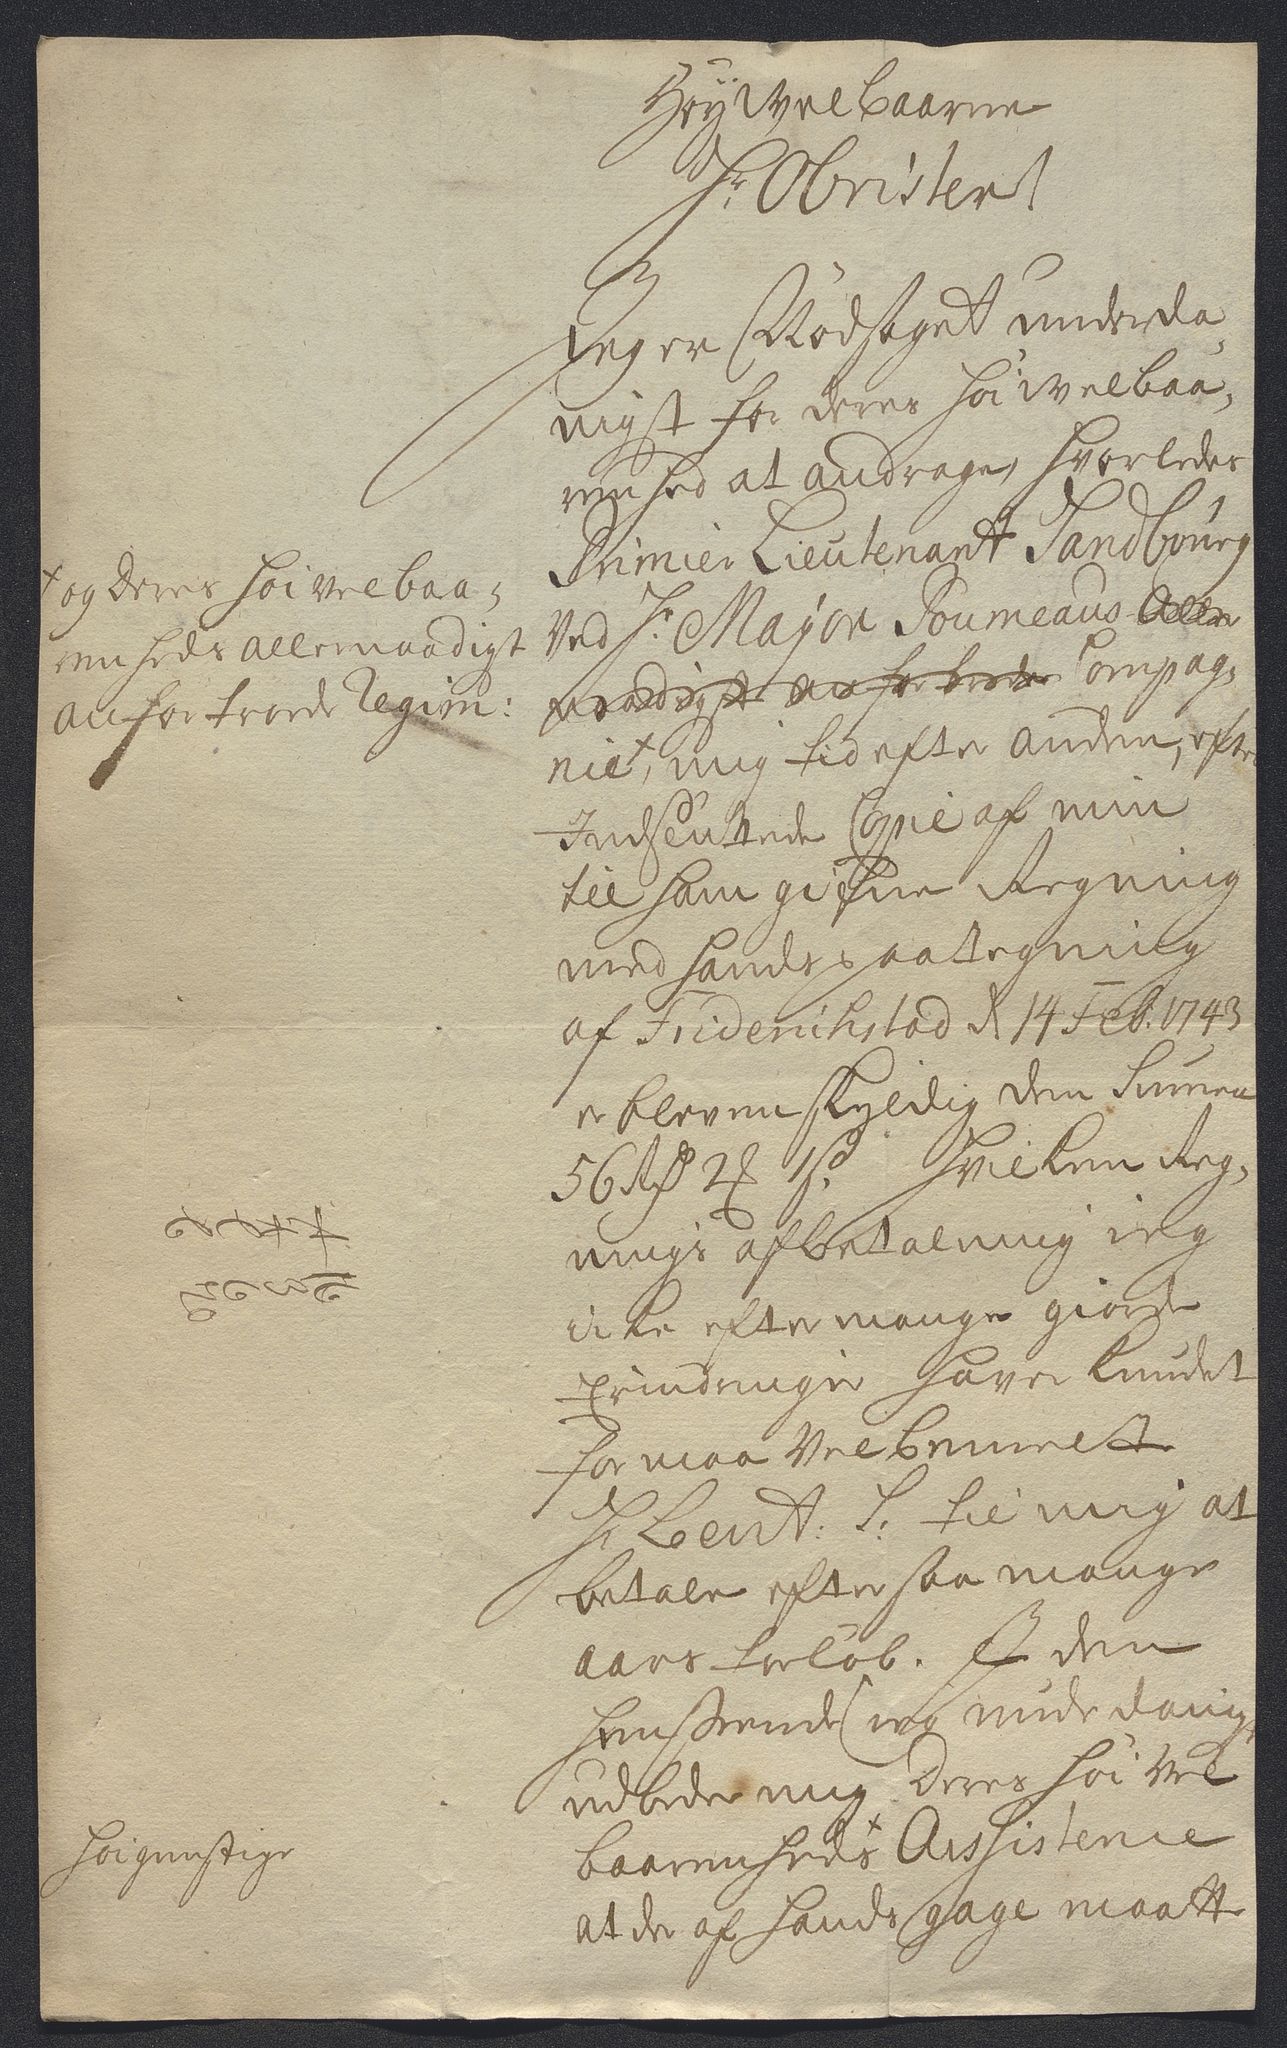 Høÿ Welbaarne
Hr. Obrister!
Jeg er Nødsaget underda,
nigst for deres høi welbaa,
renhed at andrage, hvorledes
Primier Lieutenantt Sandbourg
Ved Hr. Major Soumeaus Aller
naadigst anfortroede Compag,
nie +, mig tid efter anden, efter
Indsluttede Copie af min
til ham gifne Regning
med hands paategning
af Friderichstad d 14 Feb. 1743
er bleven skyldig den Summa
56 Rd 2 1 s. hvilken Reg,
nings afbetalning ieg
icke efter mange giorde
Erindringer haver kundet
formaa Velbemelte
Hr. Leut: S: til mig at
betale efter saa mange
aars forløb. I den
henseende ieg underdanig,
udbeder mig Deres høi Vel
baarenheds + Assistence
at der af hands gage maatte
+ og Deres høi velbaa,
renheds allernaadigst
anfortroede Regim:
høigunstige